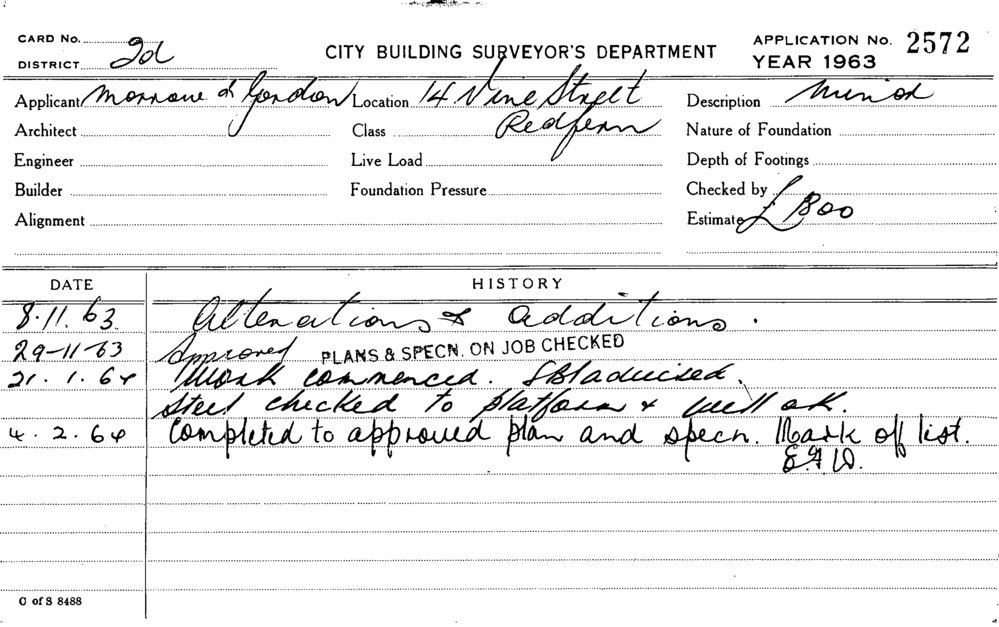 CARD No.
DISTRICT 2d
CITY BUILDING SURVEYOR'S DEPARTMENT
APPLICATION No. 2572
YEAR 1963
Applicant Morrow & Gordon Location 14 Vine Street Description Minor
Architect Class Redfern Nature of Foundation
Engineer Live Load Depth of Footings
Builder Foundation Pressure Checked by
Alignment Estimate £1800
DATE HISTORY
8.11.63 Alterations & additions.
29-11-63 Approved PLANS & SPECN. ON JOB CHECKED
21.1.64 Work commenced. advised.
Steel checked to platform & well ok.
4.2.64 Completed to approved plan and specn. Mark off list.
C of S 8488